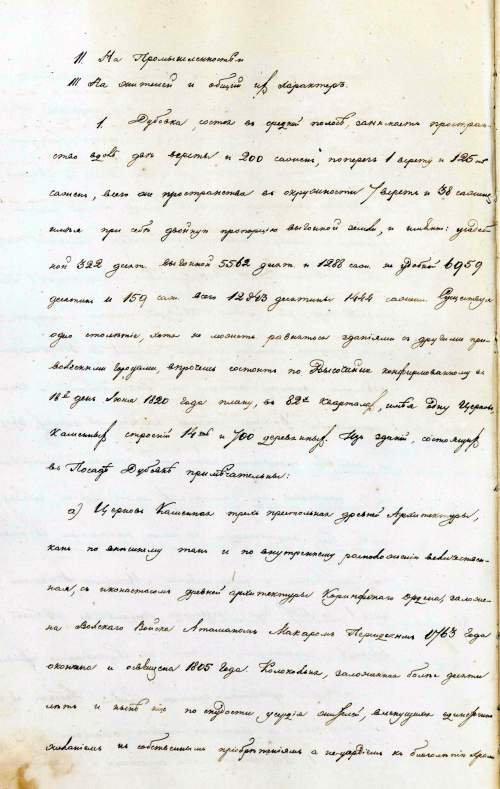 II. На Промышленность и
III На жителей и общий их характеръ.
1. Дубовка, состоя въ средней полосѣ, занимаетъ простран-
ство вдоль двѣ версты и 200 саженъ, поперегъ 1 версту и 125 ть
саженъ, всего же пространства въ окружности 7 верстъ и 38 саженъ,
имѣя при себѣ двойную пропорцію выгонной земли, а именно: усадеб-
ной 322 десят. выгонной 5562 десят. и 1288 саж. не удобной 6959
десятинъ и 159 саж. всего 12843 десятины 1444 сажени. Существуя
одно столѣтіе, хотя не можетъ равняться зданіями съ другими при-
волжскими городами, впрочемъ состоитъ по Высочайше конфирмованному въ
18й день Июня 1820 года плану, въ 82хъ кварталахъ, имѣя одну Церковь,
каменныхъ строеній 14ть и 700 деревянныхъ. Изъ зданій, состоящихъ
въ Посадѣ Дубовкѣ примѣчательны:
а) Церковь Каменная трехъ престольная древней Архитектуры,
какъ по внѣшному такъ и по внутреннему расположенію величествен-
ная, съ иконостасомъ древней архитектуры Коринфскаго ордена, заложе-
на Волскаго Войска Атаманомъ Макаромъ Персидскимъ 1763 года
окончена и освящена 1805 года. Колокольня, заложенная болѣе десяти
лѣтъ и нынѣ еще по скудости усердія жителей,
къ собственнымъ пріобрѣтеніямъ а не усердіемъ къ благолѣпію Храма